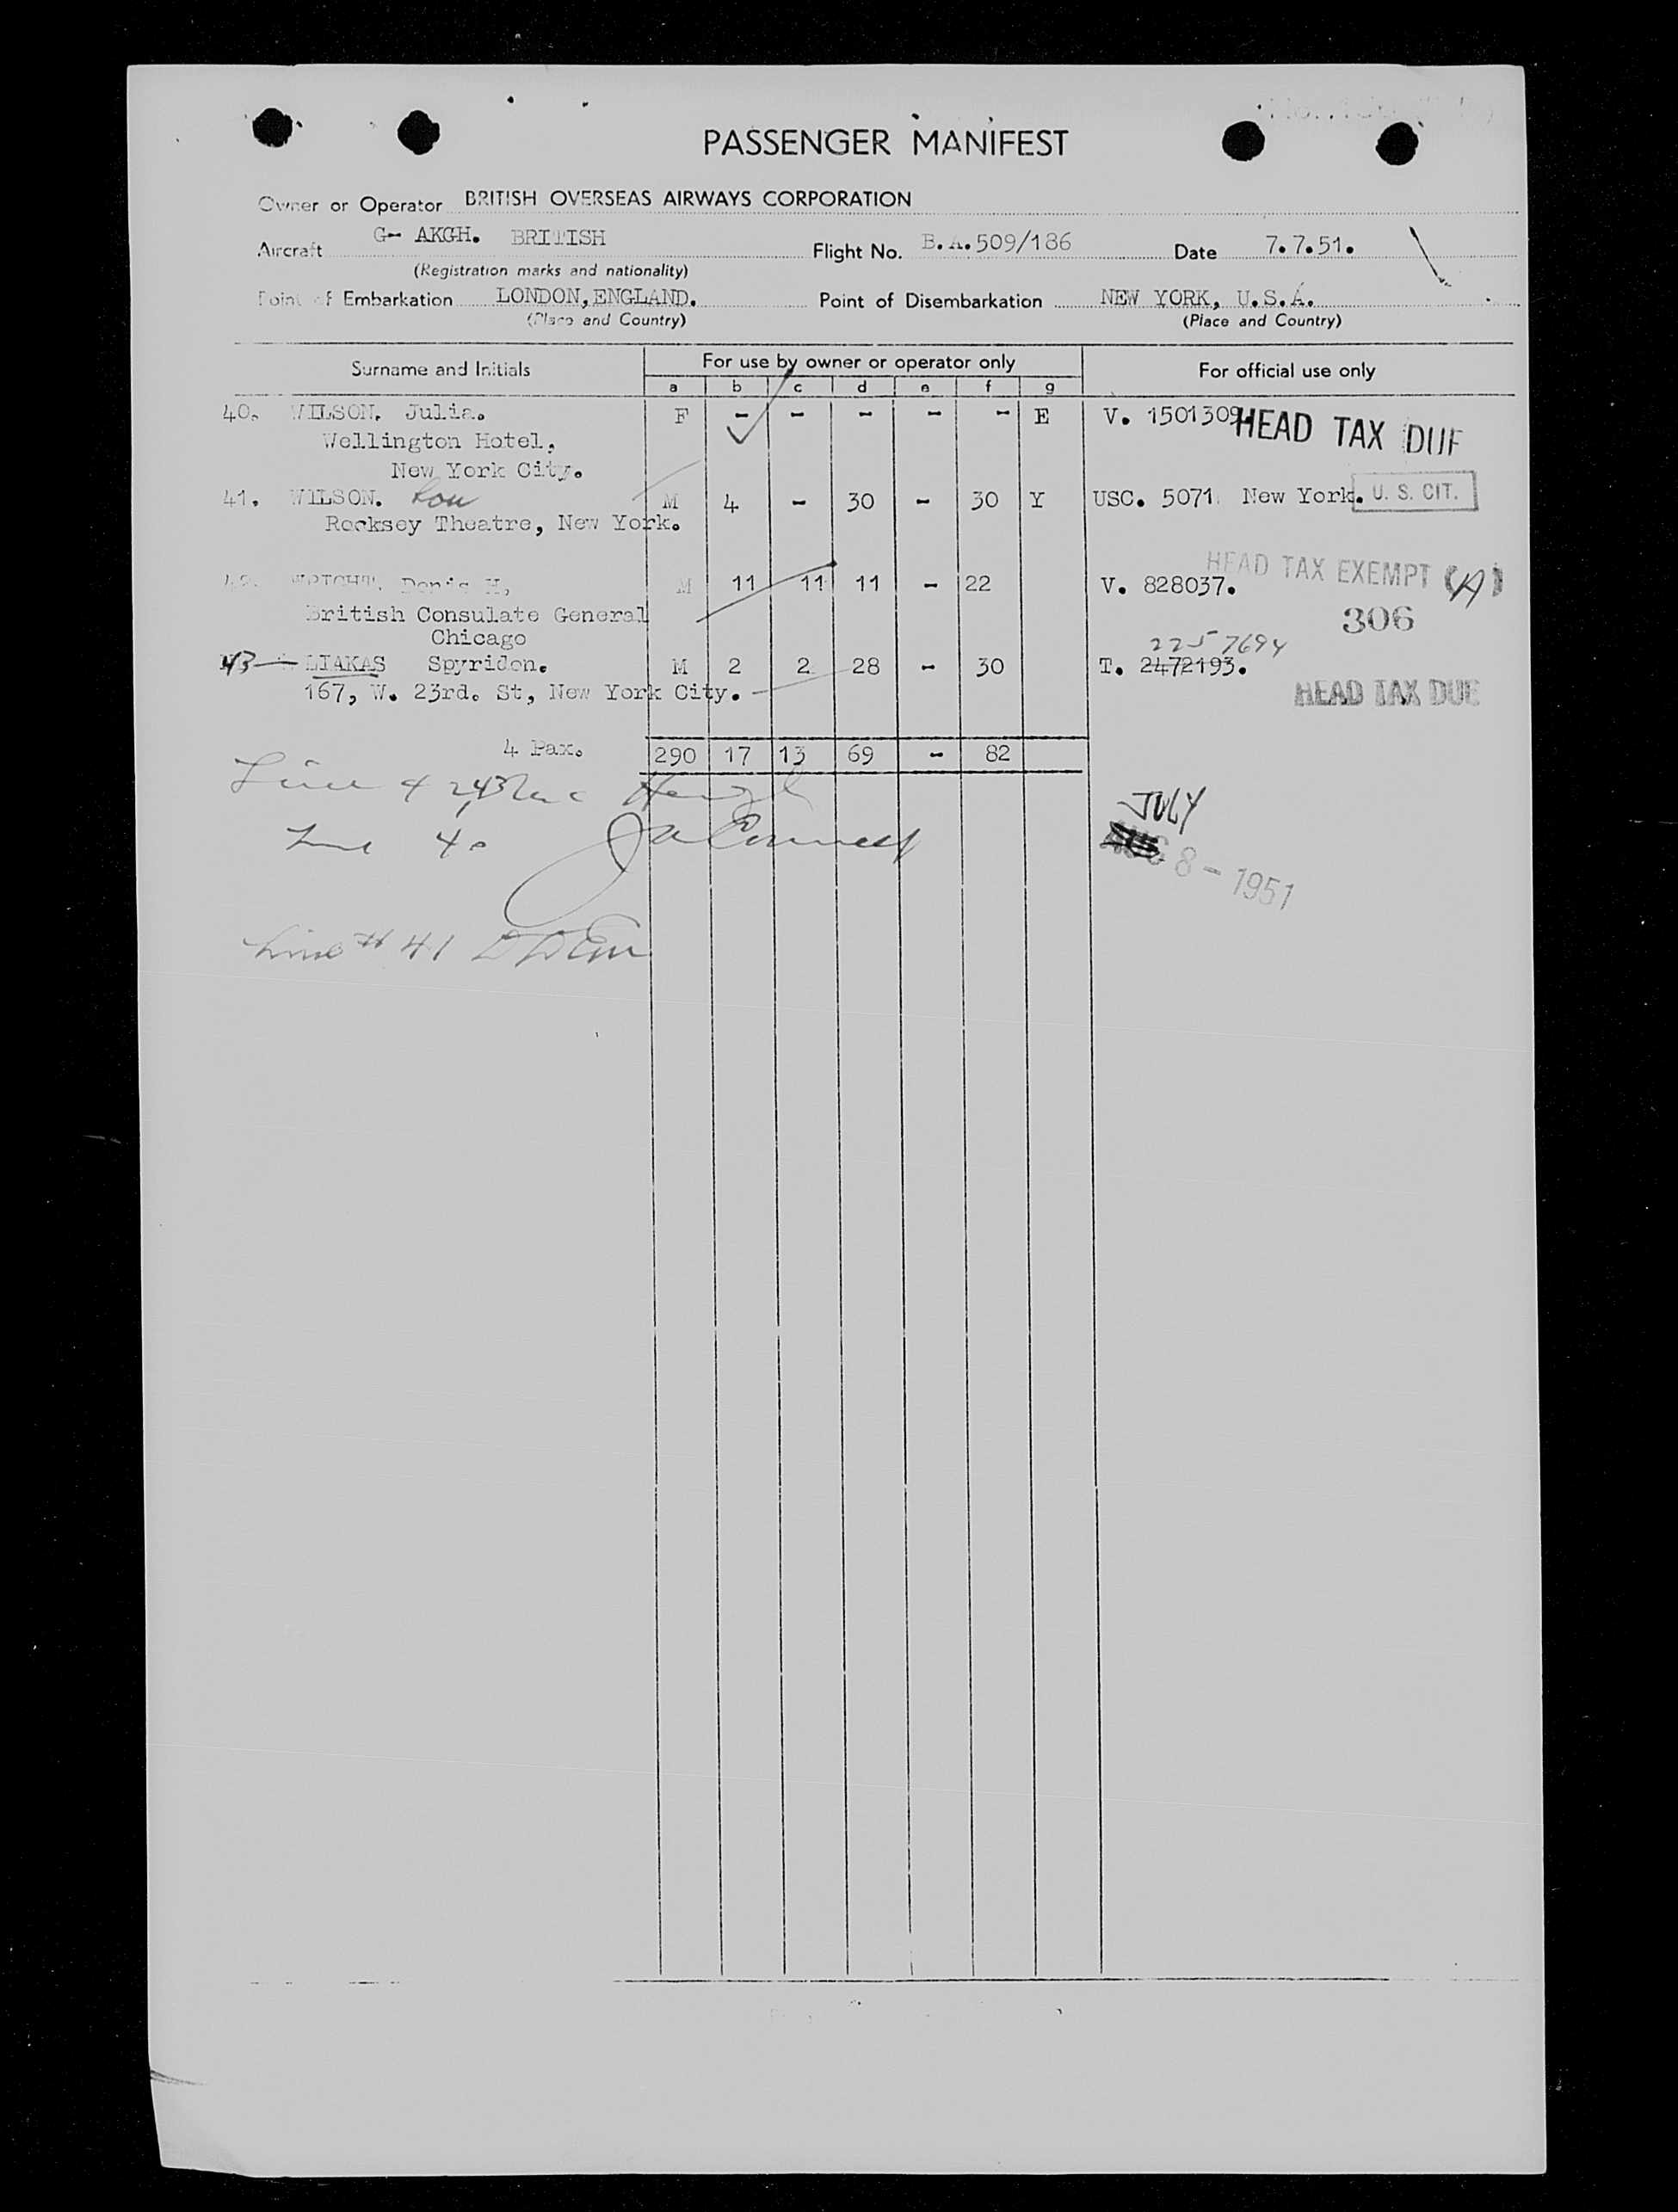 PASSENGER MANIFEST
Owner or Operator BRITISH OVERSEAS AIRWAYS CORPORATION
Aircraft G- AKGH. BRITISH Flight No. B.A.509/186 Date 7.7.51.
(Registration marks and nationality)
Point of Embarkation LONDON, ENGLAND. Point of Disembarkation NEW YORK, U.S.A.
(Place and Country) (Place and Country)
Surname and Initials For use by owner or operator only For official use only
a b c d e f g
40. WILSON. Julia. F - - - - - E V. 1501309 HEAD TAX DUE
Wellington Hotel,
New York City.
41. WILSON. Lou M 4 - 30 - 30 Y USC. 5071 New York. U. S. CIT.
Rocksey Theatre, New York.
HEAD TAX EXEMPT (A)
42. WRIGHT. Denis H, M 11 11 11 - 22 V. 828037.
British Consulate General 306
Chicago
2257694
43 LIAKAS Spyridon. M 2 2 28 - 30 T. 2472193.
167, W. 23rd. St, New York City. HEAD TAX DUE
4 Pax. 290 17 13 69 - 82
Line 42, 43
JULY
Line 40
AUG 8 - 1951
Line # 41